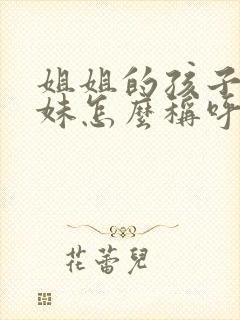 姐姐的孩子
妹怎麼稱呼
花蕾兒